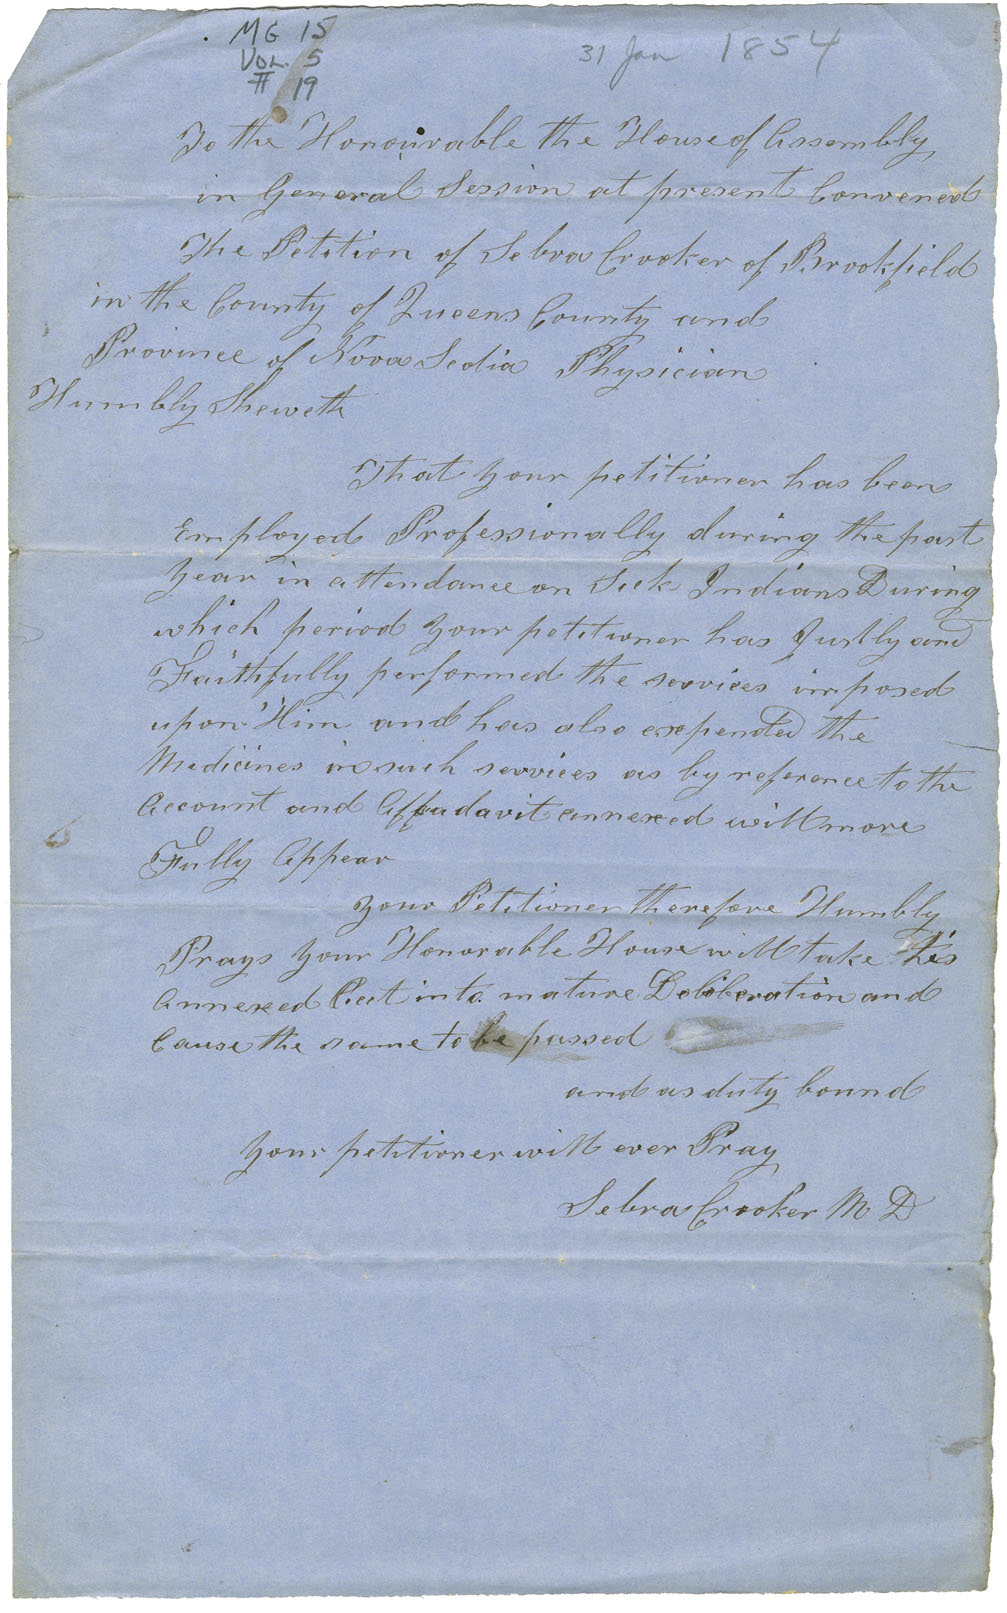 MG 15
VOL. 5
# 19
31 Jan 1854
To the Honourable the House of Assembly
in General Session at present Convened
The Petition of Sebra Crooker of Brookfield
in the County of Queens County and
Province of Nova Scotia Physician
Humbly Sheweth
That your petitioner has been
Employed Professionally during the past
Year in attendance on Sick Indians During
which period your petitioner has Justly and
Faithfully performed the services imposed
upon Him and has also expended the
Medicines in such services as by reference to the
Account and Affadavit annexed will more
Fully Appear
your Petitioner therefore Humbly
Prays your Honorable House will take this
Annexed Acct into mature Deliberation and
Cause the same to be passed
and as duty bound
your petitioner will ever Pray
Sebra Crooker M D